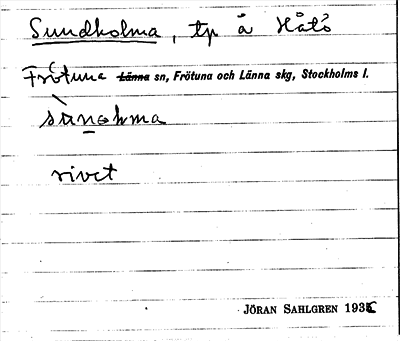 Sundholma, tp å Håtö
Frötuna ~~Länna~~ sn, Frötuna och Länna skg, Stockholms l.
rivet
JÖRAN SAHLGREN 193